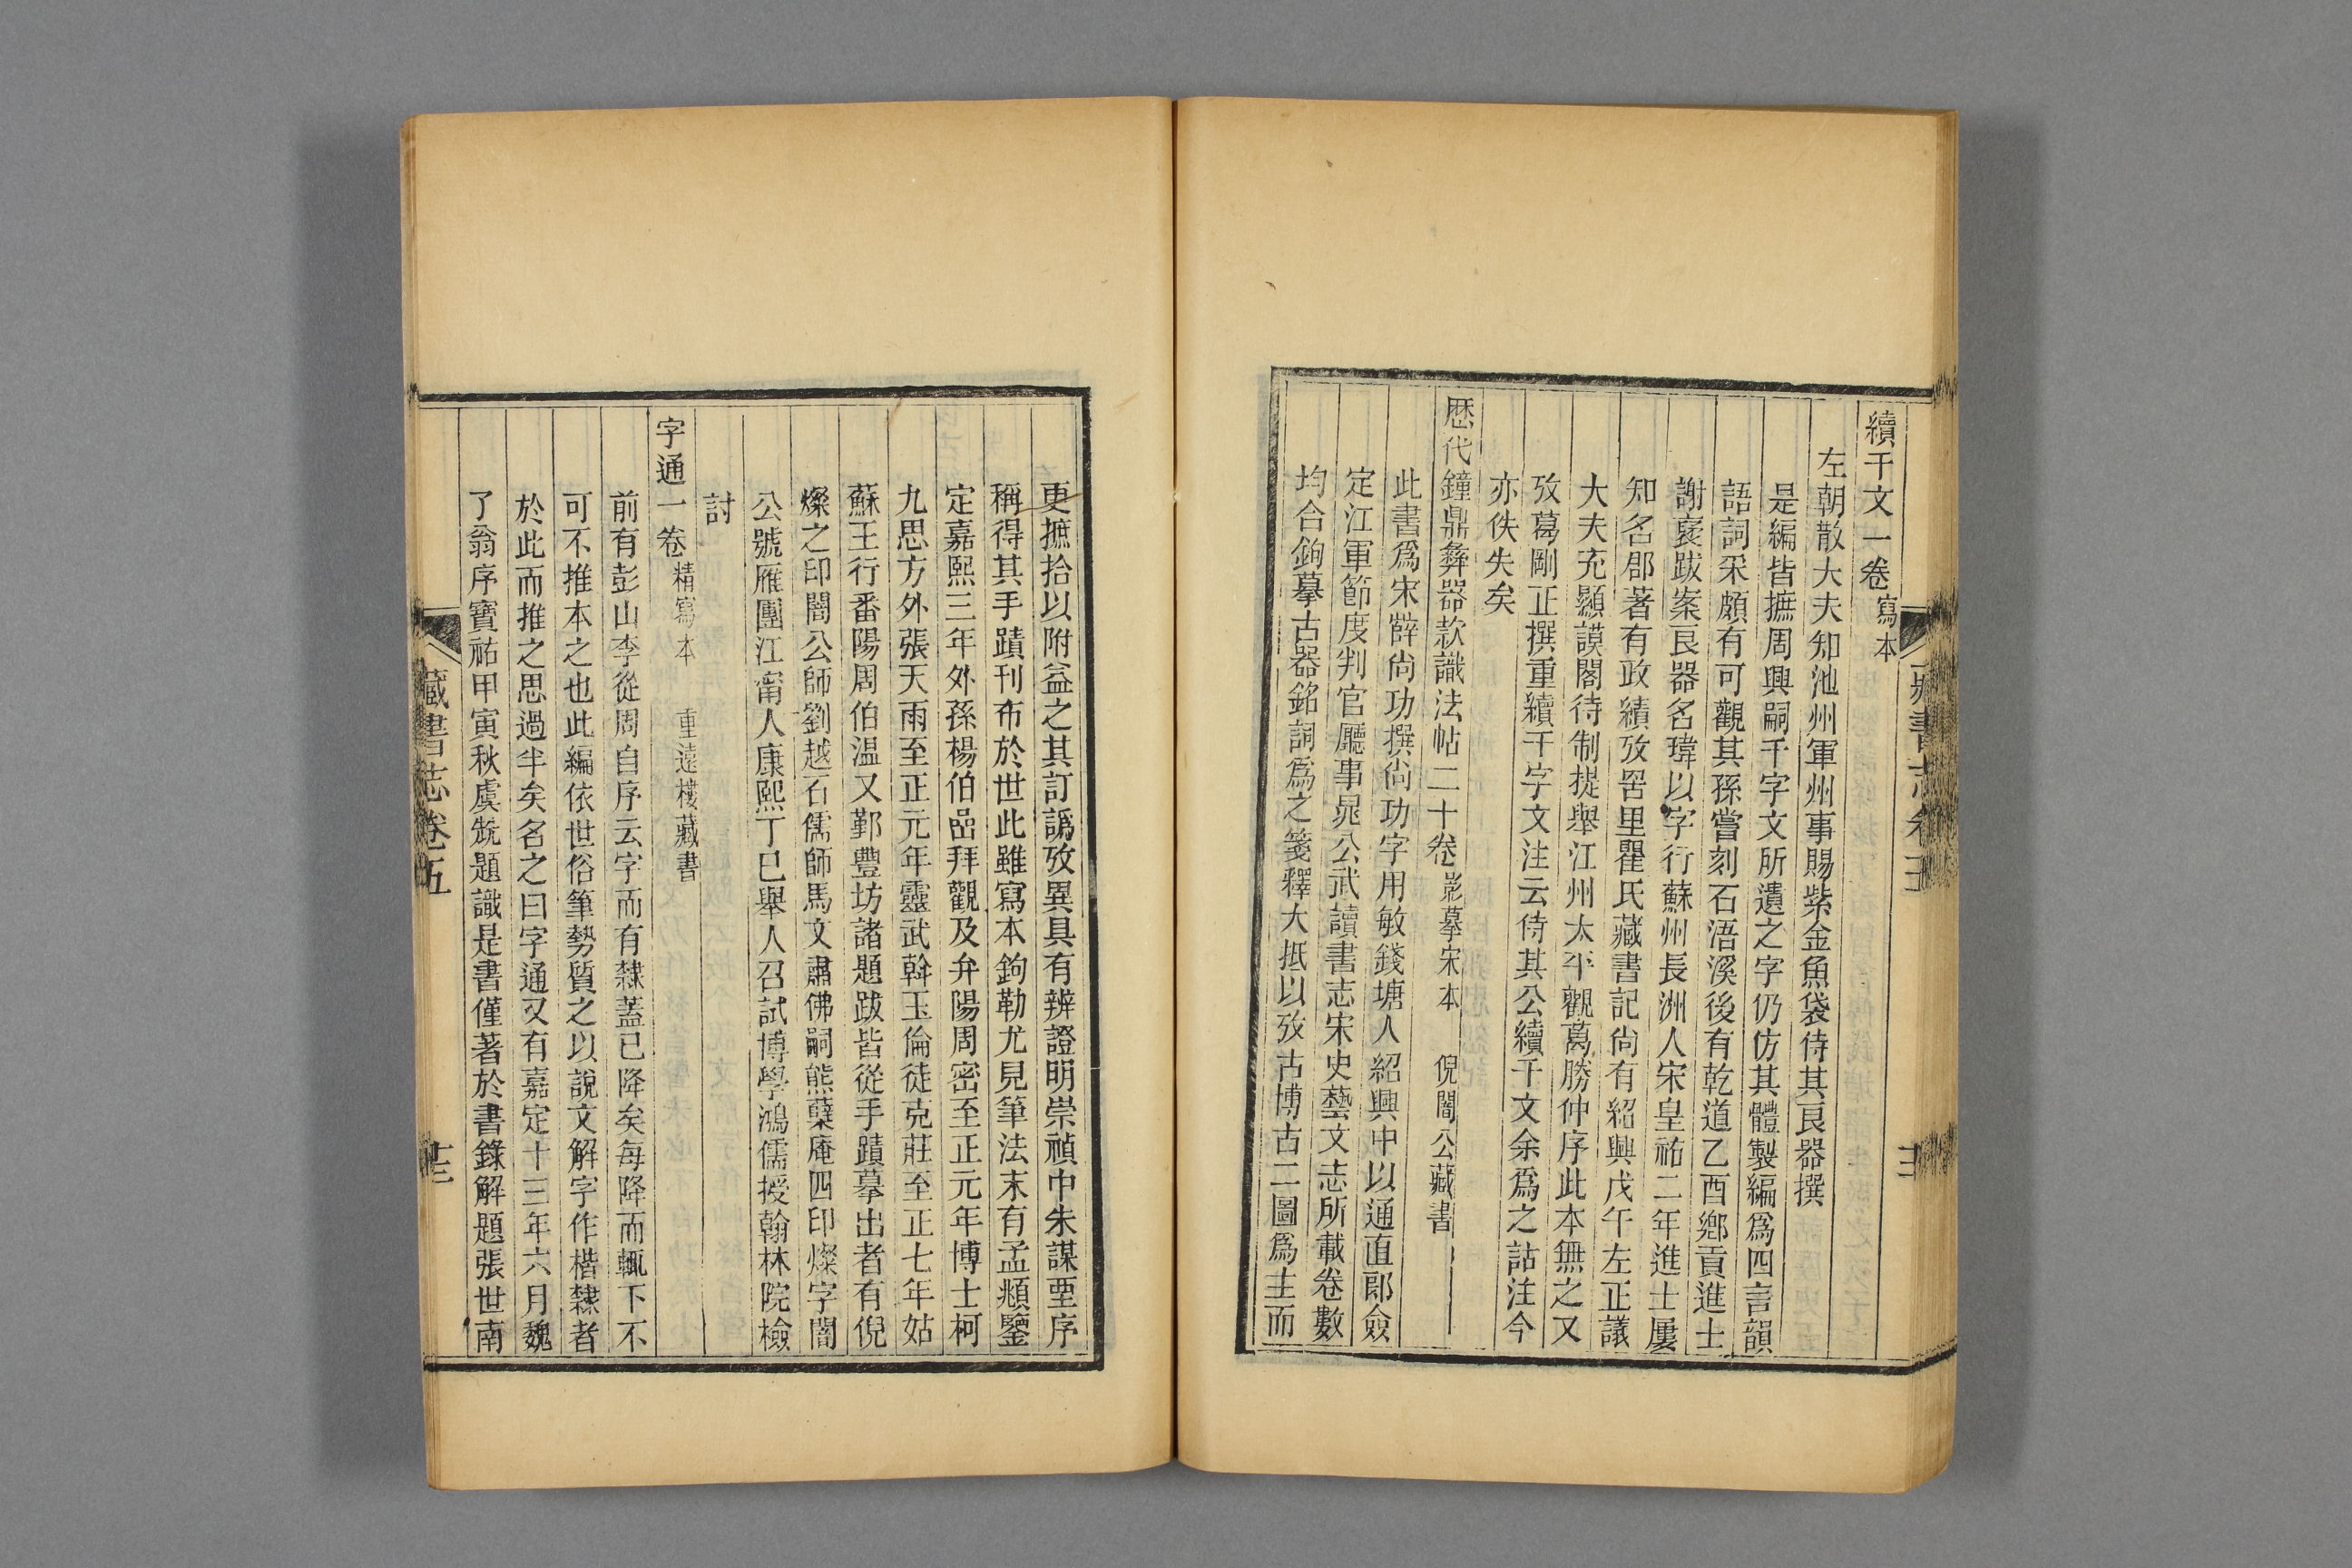 續千文一卷寫本
左朝散大夫知池州軍州事賜紫金魚袋侍其良器撰
是編皆摭周興嗣千字文所遺之字仍仿其體製編爲四言韻
語詞采頗有可觀其孫嘗刻石浯溪後有乾道乙酉鄉貢進士
謝褒跋案良器名瑋以字行蘇州長洲人宋皇祐二年進士屢
知名郡著有政績攷罟里瞿氏藏書記尙有紹興戊午左正議
大夫充顯謨閣待制提舉江州太平觀葛勝仲序此本無之又
攷葛剛正撰重續千字文注云侍其公續千文余爲之詁注今
亦佚失矣
歷代鐘鼎彝器款識法帖二十卷影摹宋本　倪闇公藏書
此書爲宋薛尙功撰尙功字用敏錢塘人紹興中以通直郎僉
定江軍節度判官廳事晁公武讀書志宋史藝文志所載卷數
均合鉤摹古器銘詞爲之箋釋大抵以攷古博古二圖爲主而
藏書志卷五
更摭拾以附益之其訂譌攷異具有辨證明崇禎中朱謀垔序
稱得其手蹟刊布於世此雖寫本鉤勒尤見筆法末有孟頫鑒
定嘉熙三年外孫楊伯嵒拜觀及弁陽周密至正元年博士柯
九思方外張天雨至正元年靈武斡玉倫徒克莊至正七年姑
蘇王行番陽周伯温又鄞豐坊諸題跋皆從手蹟摹出者有倪
燦之印闇公師劉越石儒師馬文肅佛嗣熊蘗庵四印燦字闇
公號雁園江甯人康熙丁巳舉人召試博學鴻儒授翰林院檢
討
字通一卷精寫本　重遠樓藏書
前有彭山李從周自序云字而有隸蓋已降矣每降而輒下不
可不推本之也此編依世俗筆勢質之以說文解字作楷隸者
於此而推之思過半矣名之曰字通又有嘉定十三年六月魏
了翁序寶祐甲寅秋虞兟題識是書僅著於書錄解題張世南
藏書志卷五
十三